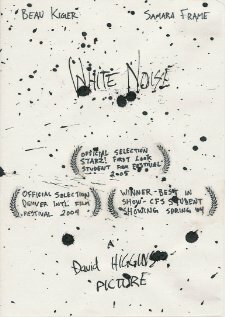 BEAU KIGER
SAMARA FRAME
WHITE NOISE
OFFICIAL SELECTION
STARZ! FIRST LOOK
STUDENT FILM FESTIVAL
2005
OFFICIAL SELECTION
DENVER INTL FILM
FESTIVAL 2004
WINNER-BEST IN
SHOW-CFS STUDENT
SHOWING SPRING 04
A
DAVID HIGGINS
PICTURE